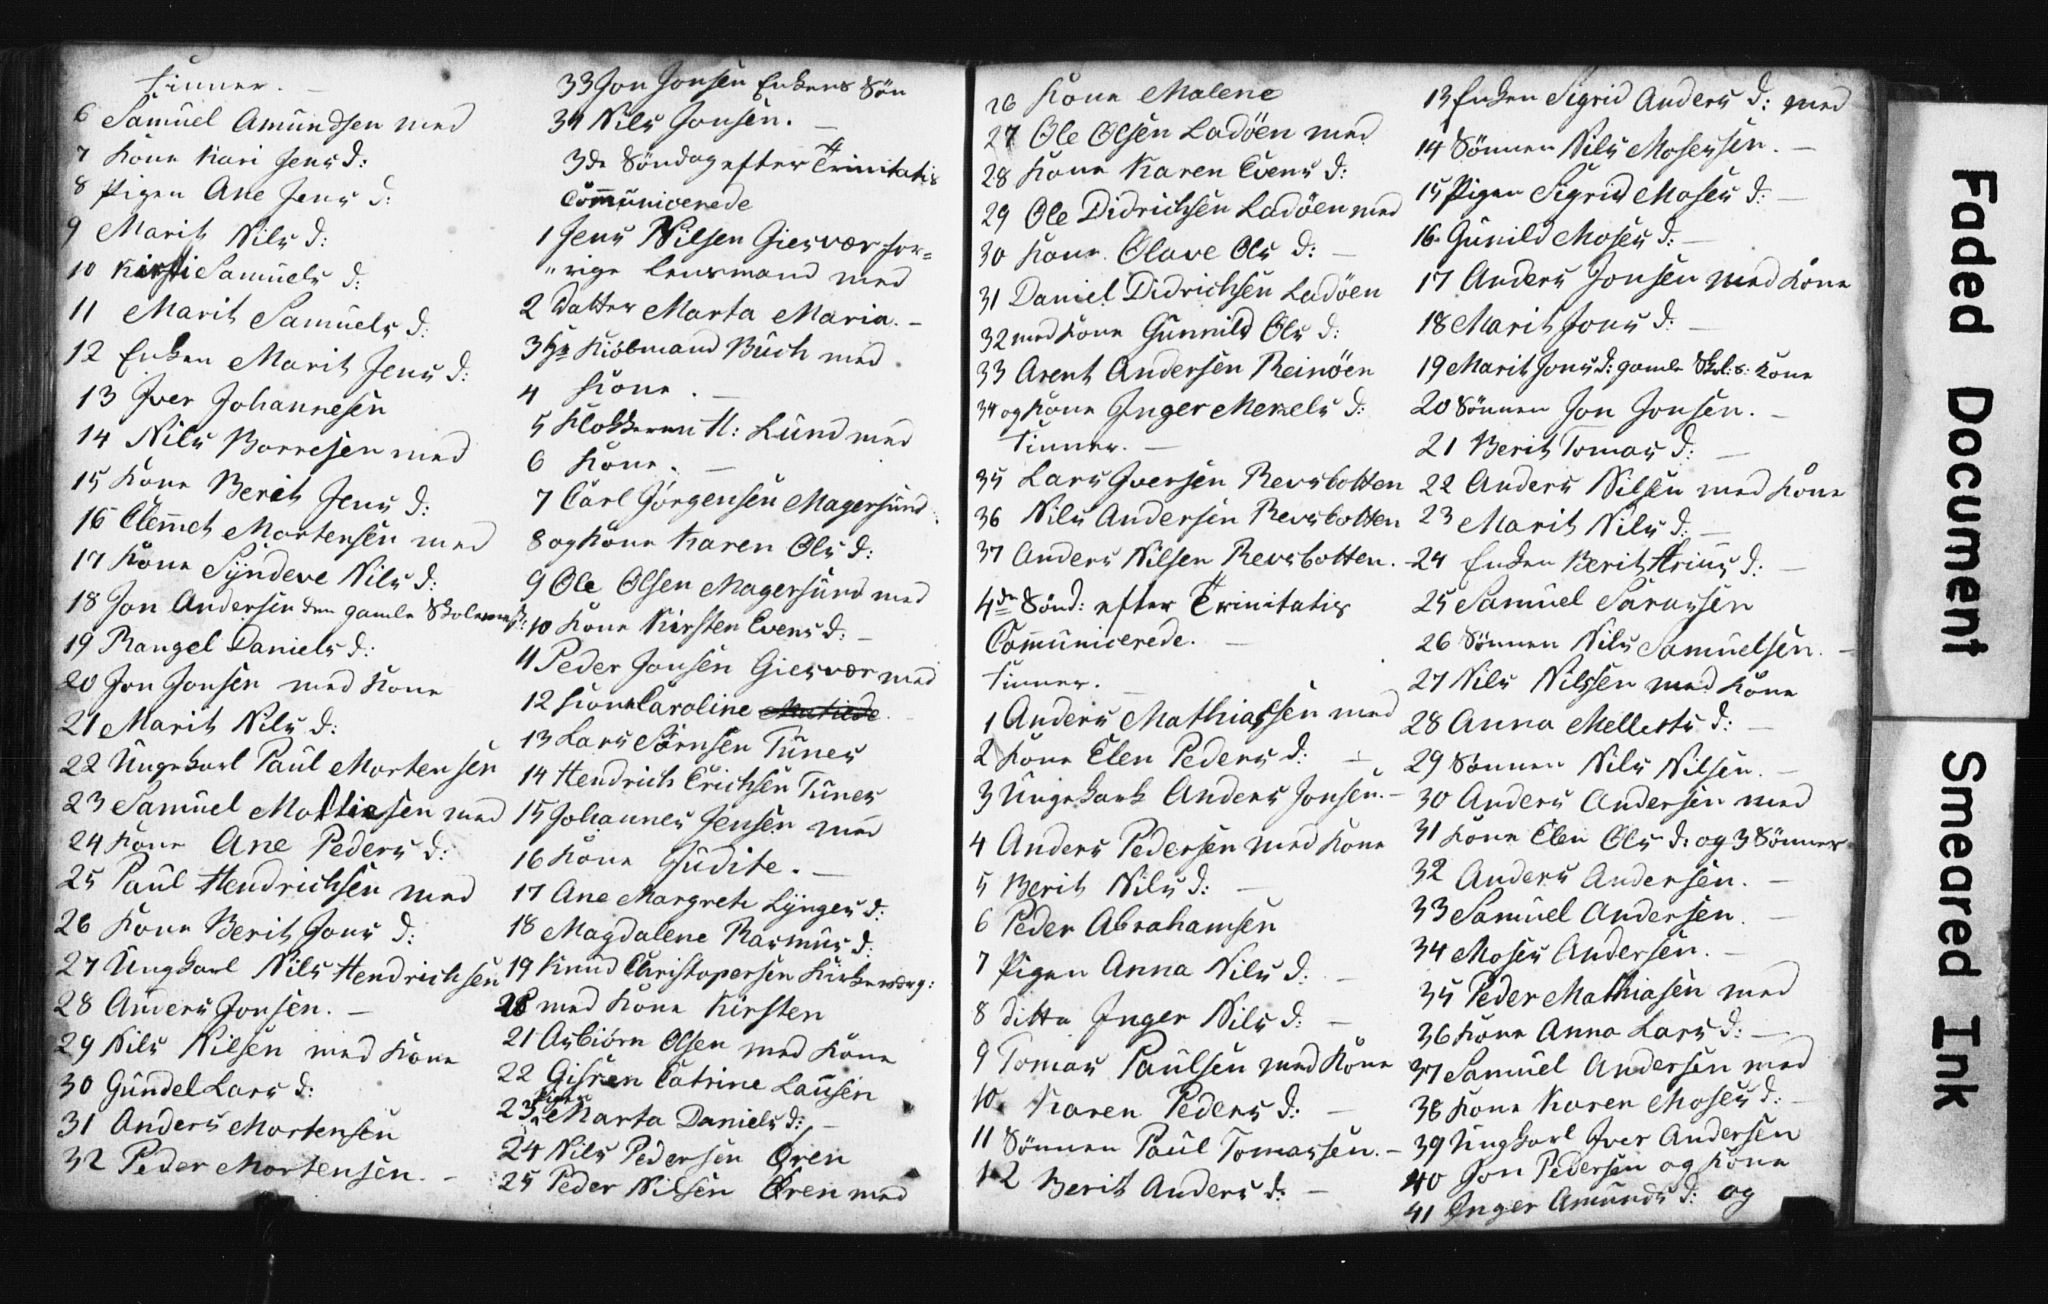 Finner.
6 Samuel Amundsen med
7 Kone Kari Jens d:
8 Pigen Ane Jens d:
9 Marit Nils d:
10 Kirsti Samuels d:
11 Marit Samuels d:
12 Enken Marit Jens d:
13 Iver Johannesen
14 Nils Borresen med
15 Kone Berit Jens d:
16 Clemet Mortensen med
17 Kone Syndeve Nils d:
18 Jon Andersen den gamle Skolem
19 Rangel Daniels d:
20 Jon Jonsen med Kone
21 Marit Nils d:
22 Ungekarl Paul Mortensen
23 Samuel Mathiesen med
24 Kone Ane Peders d:
25 Paul Hendrichsen med
26 Kone Berit Jons d:
27 Ungkarl Nils Hendrichsen
28 Anders Jonsen.
29 Nils Nilsen med Kone
30 Gundel Lars d:
31 Anders Mortensen
32 Peder Mortensen.
33 Jon Jonsen Enkens Søn
34 Nils Jonsen.
3de Søndag efter Trinitatis
Communicerede
1 Jens Nilsen Giesvær for=
"rige Lensmand med
2 Datter Marta Maria.
3 Hr Kiøbmand Buch med
4 Kone.
5 Klokkeren H: Lund med
6 Kone.
7 Carl Jørgensen Magersund
8 og Kone Karen Ols d:
9 Ole Olsen Magersund med
10 Kone Kirsten Evens d:
11 Peder Jonsen Giesvær med
12 Kone Caroline
13 Lars Sørnsen Tunes
14 Hendrich Erichsen Tunes
15 Johannes Jensen med
16 Kone Judite.
17 Ane Margrete Lynges d:
18 Magdalene Rasmus d:
19 Knud Christopersen Kirkeværg:
20 med Kone Kirsten
21 Asbiørn Olsen med Kone
22 Gisken Catrine Lausen
23 Pigen Marta Daniels d:
24 Nils Pedersen Øren
25 Peder Nilsen Øren med
26 Kone Malene
27 Ole Olsen Ladøen med
28 Kone Karen Evens d:
29 Ole Didrichsen Ladøen med
30 Kone Olave Ols d:
31 Daniel Didrichsen Ladøen
32 med Kone Gunnild Ols d:
33 Arent Andersen Reinøen
34 og Kone Inger Mekels d:
Finner.
35 Lars Iversen Revsbotten
36 Nils Andersen Revsbotten
37 Anders Nilsen Revsbotten.
4de Sønd: efter Trinitatis
Communicerede.
Finner.
1 Anders Mathiassen med
2 Kone Elen Peders d:
3 Ungekarl Anders Jonsen.
4 Anders Pedersen med Kone
5 Berit Nils d:
6 Peder Abrahamsen
7 Pigen Anna Nils d:
8 ditto Inger Nils d:
9 Tomas Paulsen med Kone
10 Karen Peders d:
11 Sønnen Paul Tomassen.
12 Berit Anders d:
13 Enken Sigrid Anders d: med
14 Sønnen Nils Mosessen.
15 Pigen Sigrid Moses d:
16 Gunild Moses d:
17 Anders Jonsen med Kone
18 Marit Jons d:
19 Marit Jons d: gamle Skol: s: Kone
20 Sønnen Jon Jonsen.
21 Berit Tomas d:
22 Anders Nilsen med Kone
23 Marit Nils d:
24 Enken Berit d:
25 Samuel Sarassen
26 Sønnen Nils Samuelsen.
27 Nils Nilssen med Kone
28 Anna Mellets d:
29 Sønnen Nils Nilsen.
30 Anders Andersen med
31 Kone Elen Ols d: og 3 Sønner
32 Anders Andersen.
33 Samuel Andersen.
34 Moses Andersen.
35 Peder Mathiasen med
36 Kone Anna Lars d:
37 Samuel Andersen med
38 Kone Karen Moses d:
39 Ungkarl Iver Andersen
40 Jon Pedersen og Kone
41 Inger Amunds d: og
Faded Document
Smeared Ink